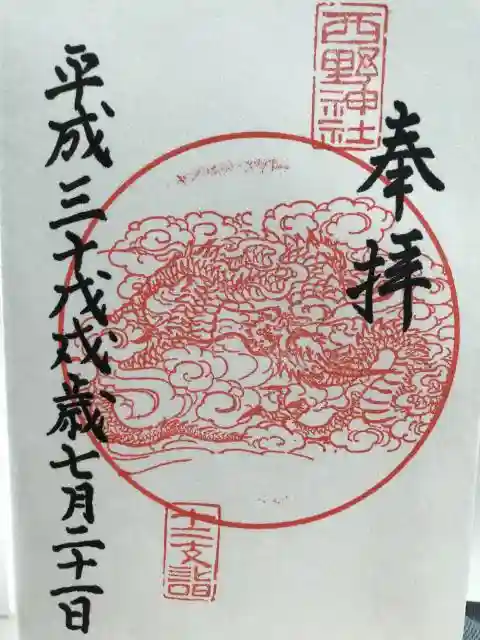 西野神社
奉拝
十二支詣
平成三十戊戌歳七月二十一日